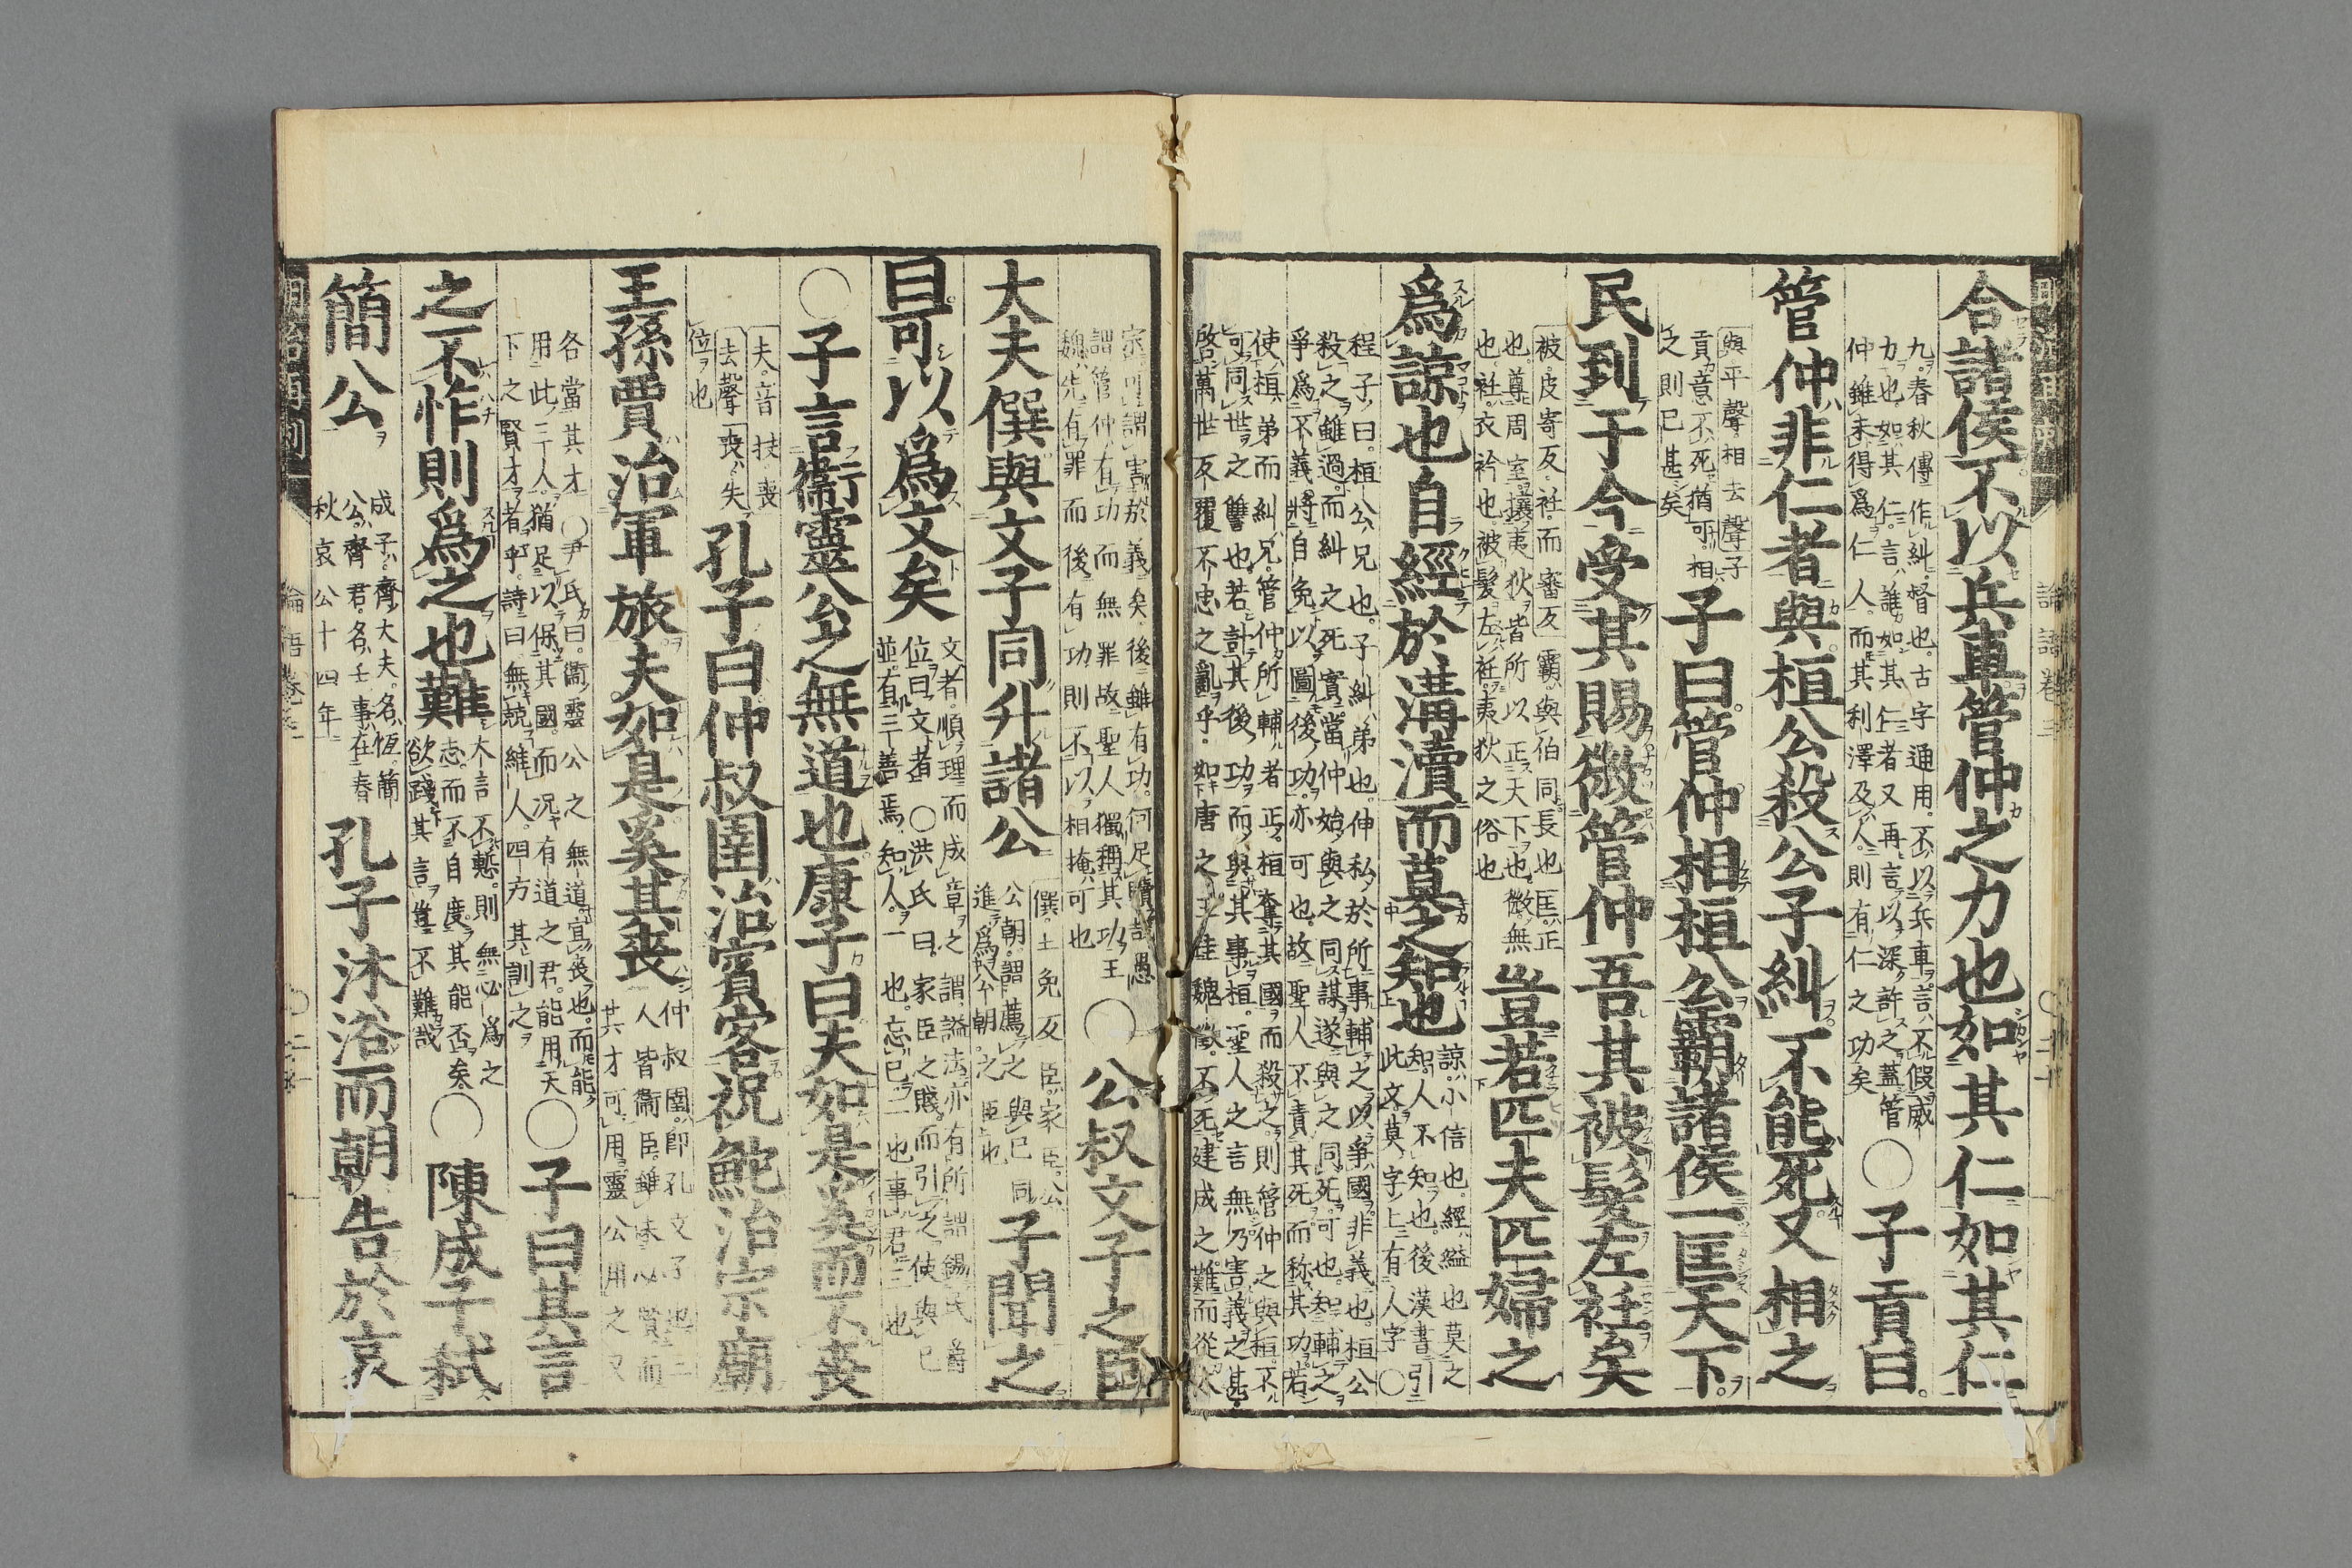 合諸侯不以兵車管仲之力也如其仁如其仁
九春秋傳作糾督也古字通用不以兵車言不假威
力也如其仁言誰如其仁者又再言以深許之蓋管
仲雖未得爲仁人而其利澤及人則有仁之功矣
○子貢曰
管仲非仁者與桓公殺公子糾不能死又相之
與平聲相去聲子
貢意不死猶可相
之則已甚矣
子曰管仲相桓公霸諸侯一匡天下
民到于今受其賜微管仲吾其被髮左衽矣
被皮寄反衽而審反霸與伯同長也匡正
也尊周室攘夷狄皆所以正天下也微無
也衽衣衿也被髮左衽夷狄之俗也
豈若匹夫匹婦之
爲諒也自經於溝瀆而莫之知也
諒小信也經縊也莫之
知人不知也後漢書引
此文莫字上有人字○
程子曰桓公兄也子糾弟也仲私於所事輔之以爭國非義也桓公
殺之雖過而糾之死實當仲始與之同謀遂與之同死可也知輔之
爭爲不義將自免以圖後功亦可也故聖人不責其死而称其功若
使桓弟而糾兄管仲所輔者正桓奪其國而殺之則管仲之與桓不
可同世之讐也若計其後功而與其事桓聖人之言無乃害義之甚
啓萬世反覆不忠之亂乎如唐之王珪魏徵不死建成之難而從太
宗可謂害於義矣後雖有功何足贖哉愚
謂管仲有功而無罪故聖人獨稱其功王
魏先有罪而後有功則不以相掩可也
○公叔文子之臣
大夫僎與文子同升諸公
僎士免反臣家臣公
公朝謂薦之與已同
進爲公朝之臣也
子聞之
曰可以爲文矣
文者順理而成章之謂謚法亦有所謂錫民爵
位曰文者○洪氏曰家臣之賤而引之使與已
並有三善焉知人一也忘己二也事君三也
○子言衞靈公之無道也康子曰夫如是奚而不喪
夫音扶喪
去聲喪失
位也
孔子曰仲叔圉治賓客祝鮀治宗廟
王孫賈治軍旅夫如是奚其喪
仲叔圉卽孔文子也三
人皆衞臣雖未必賢而
其才可用靈公用之又
各當其才○尹氏曰衞靈公之無道宜喪也而能
用此三人猶足以保其國而况有道之君能用天
下之賢才者乎詩曰無競維人四方其訓之
○子曰其言
之不怍則爲之也難
大言不慙則無必爲之
志而不自度其能否矣
欲踐其言豈不難哉
○陳成子弑
簡公
成子齊大夫名恆簡
公齊君名壬事在春
秋哀公十四年
孔子沐浴而朝告於哀